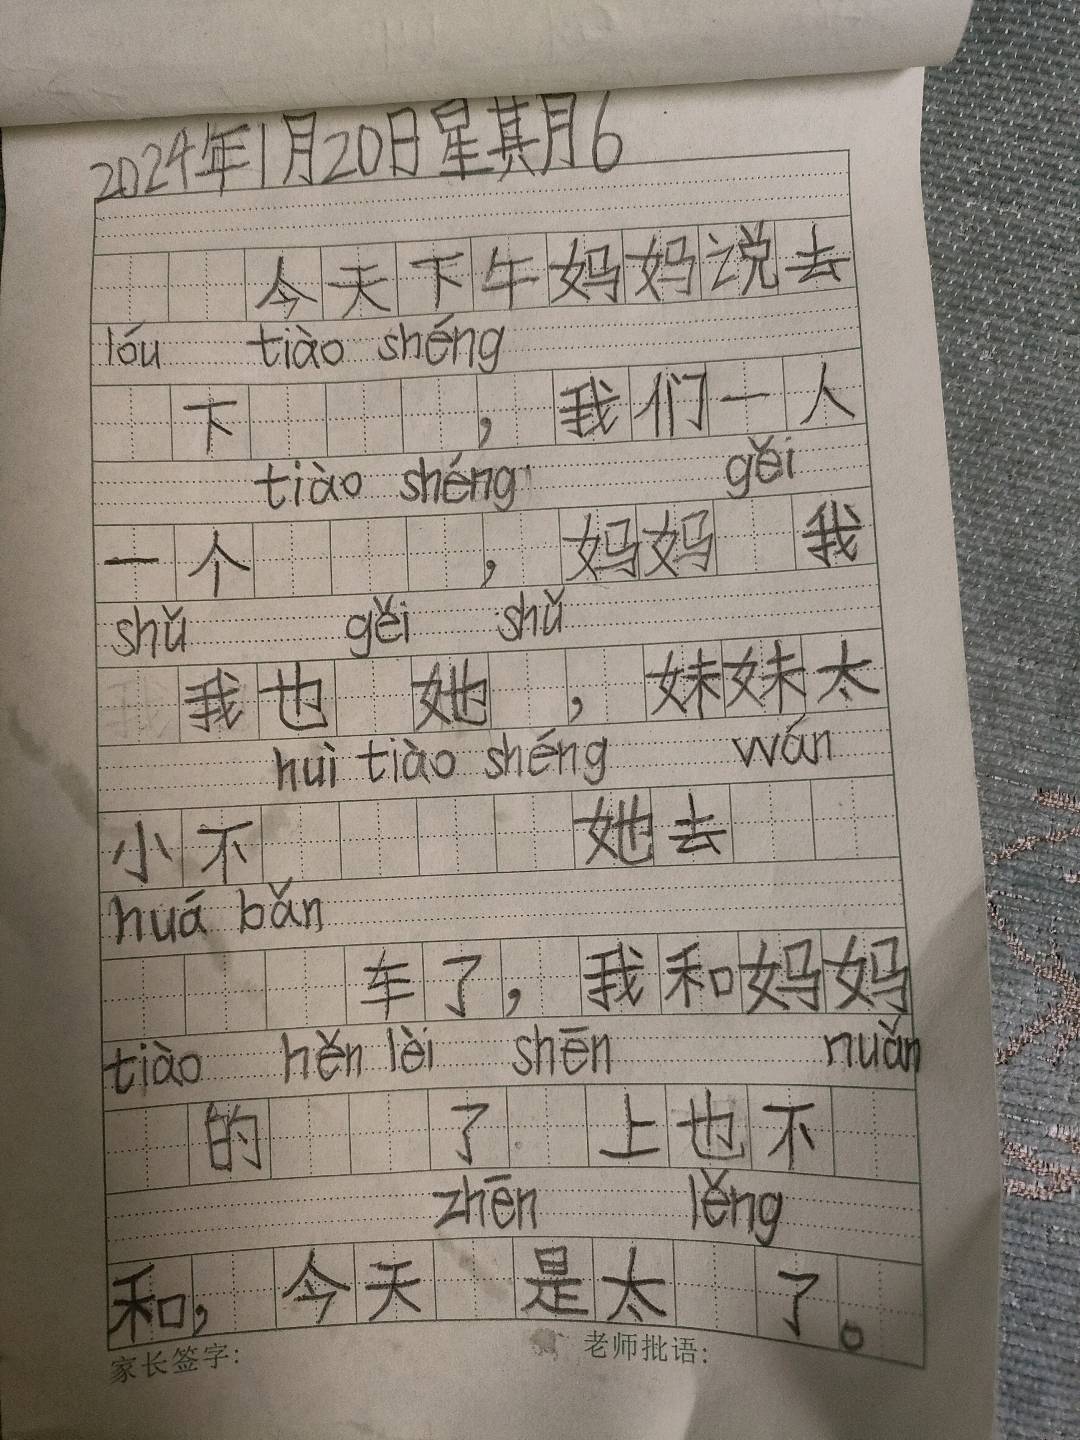 2024年1月20日星其月6
今天下午妈妈说去
lóu tiào shéng
下，我们一人
tiào shéng gěi
一个，妈妈我
shǔ gěi shǔ
我也她，妹妹太
huì tiào shéng wán
小不她去
huá bǎn
车了，我和妈妈
tiào hěn lèi shēn nuǎn
的了上也不
zhēn lěng
和，今天是太了。
家长签字： 老师批语：